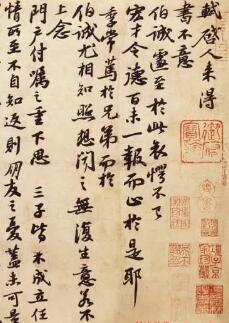 軾啓人來得
書不意
伯誠遽至於此哀愕不已
宏才令德百未一報而止於是耶
季常篤於兄弟而於
伯誠尤相知照想聞之無復生意若不
上念
門戶付囑之重下思三子皆不成立任
情所至不自知返則朋友之憂蓋未可量